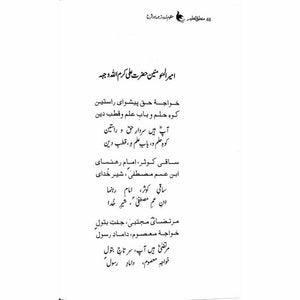 امیر المومنین حضرت علی کرم اللہ وجہہ
خواجۂ حق پیشوای راستین
کوہ حلم و باب علم و قطب دین
آپؓ ہیں سردار حق و راستین
کوہ حلم و، باب علم و، قطب دین
ساقی کوثر، امام رھنمای
ابن عم مصطفیٰؐ، شیر خدای
ساقی کوثر، امام رہنما
ابن عم مصطفیٰؐ، شیر خدا
مرتضائ مجتبیٰ، جفت بتول
خواجۂ معصوم، داماد رسولؐ
مرتضیٰؓ ہیں آپ، سر تاج بتول
خواجہ معصوم، داماد رسولؐ